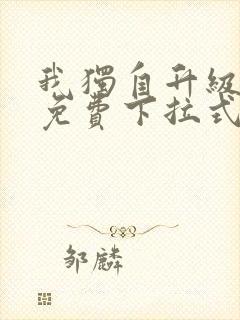 我獨自升級
免費下拉式
鄒麟